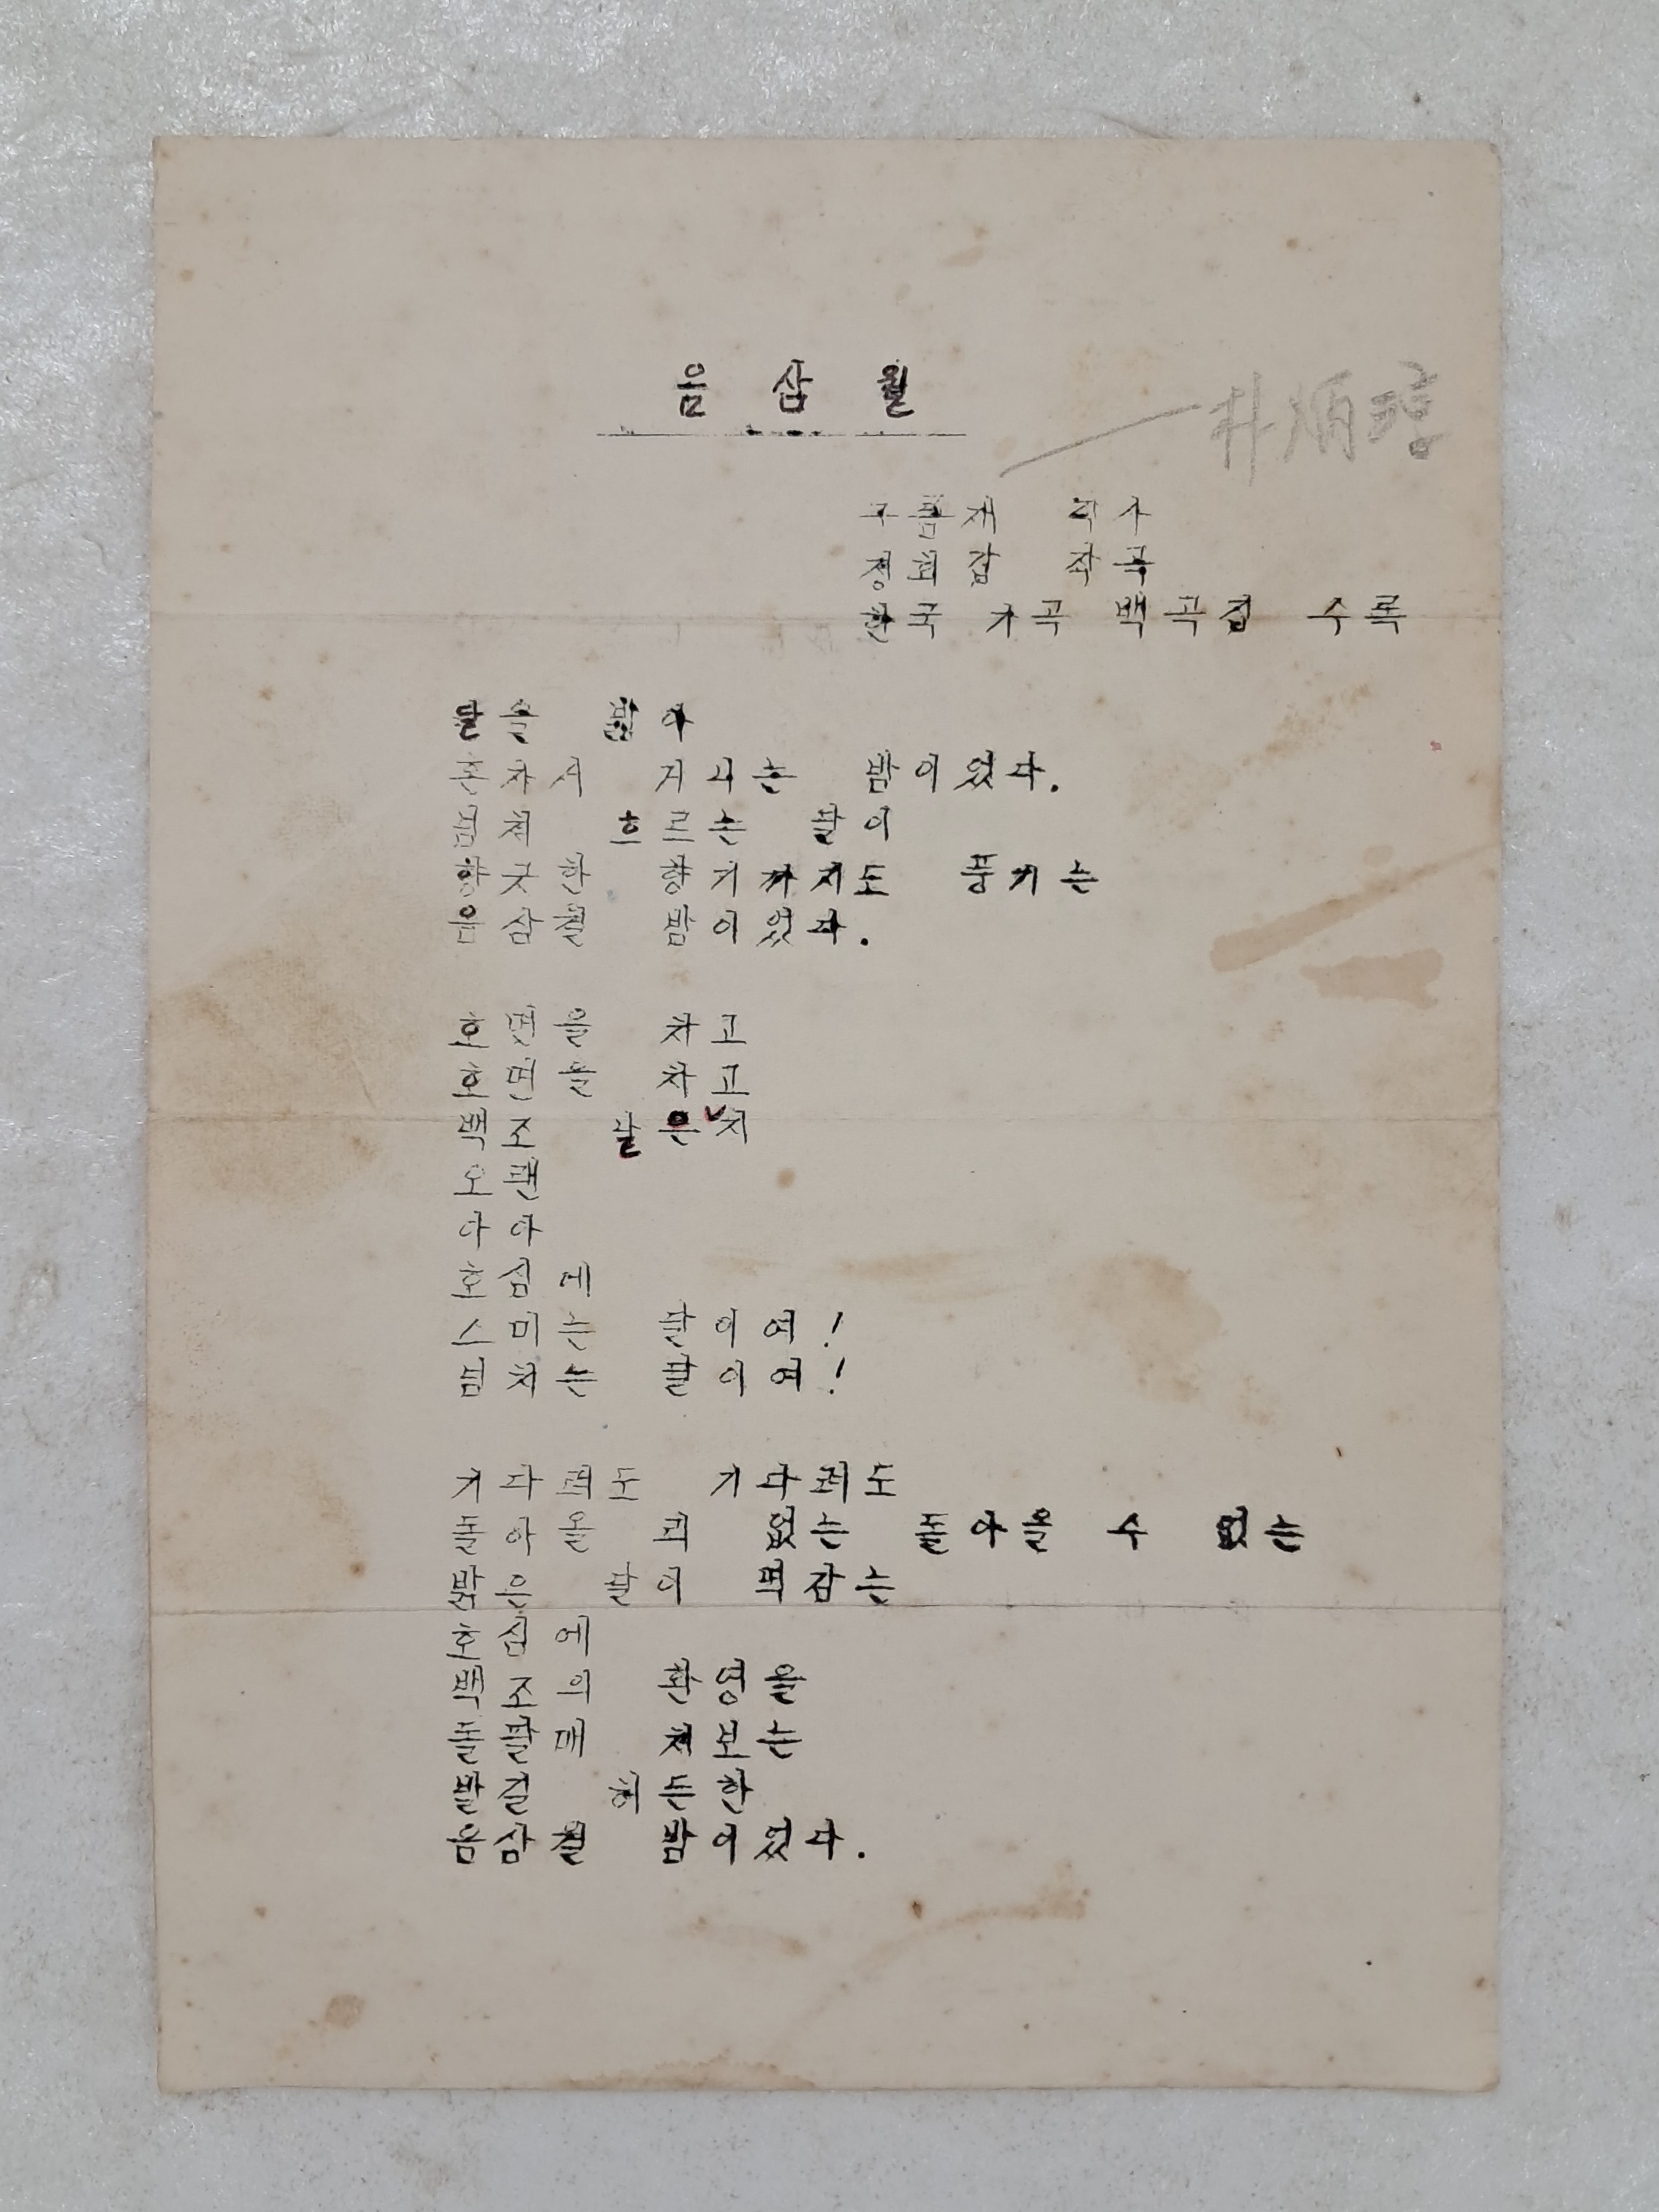 음 삼 월
朴炳淳
구름재 작사
정회갑 작곡
한국 가곡 백곡집 수록
달은 밝아
혼자서 거니는 밤이었다.
넘쳐 흐르는 달이
향긋한 향기까지도 풍기는
음삼월 밤이었다.
호면을 차고
호면을 차고
백조 날은 지
오랜
아아
호심에
스미는 달이여!
넘치는 달이여!
기다려도 기다려도
돌아올 리 없는 돌아올 수 없는
밝은 달이 먹감는
호심에
백조의 환영을
돌팔매 쳐보는
발길 허든한
음삼월 밤이었다.